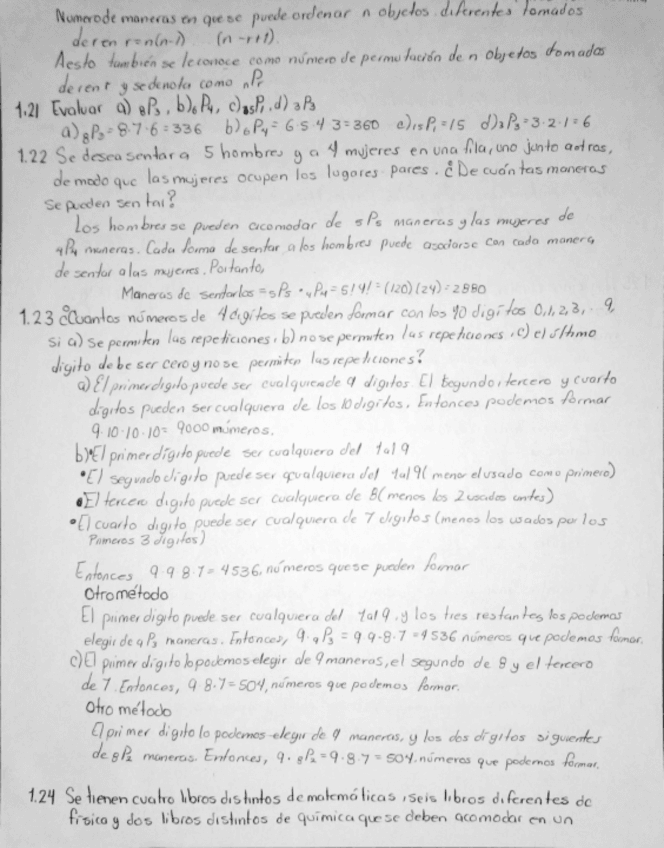 Numero de maneras en que se puede ordenar n objetos diferentes tomados
de r en r=n(n-1) (n-r+1).
Aesto también se le conoce como número de permutación de n Objetos tomados
de r en r y se denota como nPr
1.21 Evaluar a) 8P3, b)6P4, c)15P1, d) 3P3
a)8P3=8·7·6=336 b)6P4=6·5·4·3=360 c)15P1=15 d)3P3=3·2·1=6
1.22 Se desea sentar a 5 hombres y a 4 mujeres en una fila, uno junto a otros,
de modo que las mujeres ocupen los lugares pares. ¿De cuántas maneras
se pueden sentar?
Los hombres se pueden acomodar de 5P5 maneras y las mujeres de
4P4 maneras. Cada forma de sentar a los hombres puede asociarse con cada manera
de sentar a las mujeres. Portanto,
Maneras de sentarlos = 5P5 · 4P4 = 5!4! = (120)(24) = 2880
1.23 ¿Cuantos números de 4 digitos se pueden formar con los 10 digitos 0,1,2,3,··9,
si a) se permiten las repeticiones, b) no se permiten las repeticiones, c) el último
digito debe ser cero y no se permiten las repeticiones?
a) El primer digito puede ser cualquiera de 9 digitos. El segundo, tercero y cuarto
digitos pueden ser cualquiera de los 10 digitos. Entonces podemos formar
9·10·10·10= 9000 números.
b)•El primer dígito puede ser cualquiera del 1 al 9
•El segundo digito puede ser cualquiera del 1 al 9 (menor el usado como primero)
•El tercero digito puede ser cualquiera de 8 (menos los 2 usados antes)
•El cuarto digito puede ser cualquiera de 7 digitos (menos los usados por los
Primeros 3 digitos)
Entonces 9·9·8·7= 4536, números que se pueden formar
Otro método
El primer digito puede ser cualquiera del 1 al 9, y los tres restantes los podemos
elegir de 9P3 maneras. Entonces, 9·9P3 = 9·9·8·7=4536 números que podemos formar.
c) El primer dígito lo podemos elegir de 9 maneras, el segundo de 8 y el tercero
de 7. Entonces, 9·8·7=504, números que podemos formar.
Otro método
El primer digito lo podemos elegir de 9 maneras, y los dos digitos siguientes
de 8P2 maneras. Entonces, 9·8P2=9·8·7=504. números que podemos formar.
1.24 Se tienen cuatro libros distintos de matemáticas, seis libros diferentes de
fisica y dos libros distintos de química que se deben acomodar en un